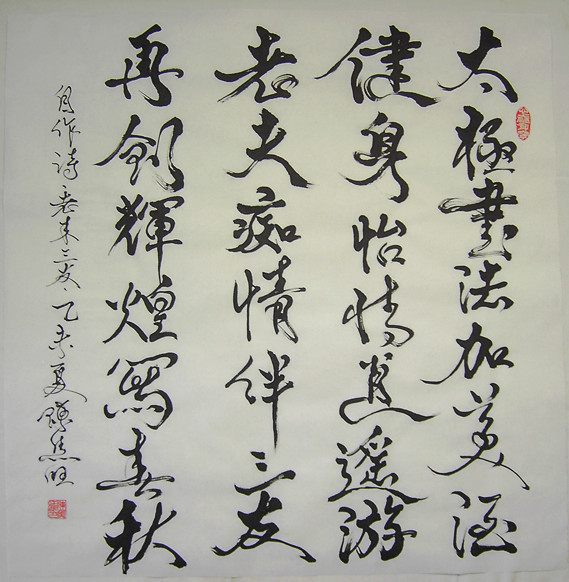 太極書法加美酒
健身怡情逍遙游
老夫痴情伴三友
再創輝煌寫春秋
自作诗老来三友乙未夏